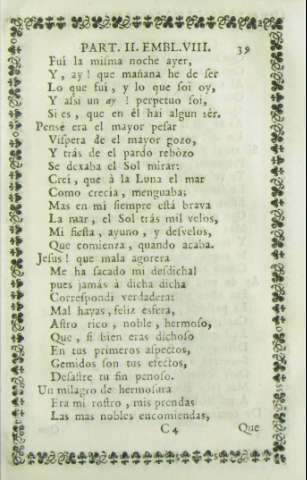 PART. II. EMBL. VIII. 39
Fui la misma noche ayer,
Y, ay! que mañana he de ser
Lo que fui, y lo que soi oy,
Y assi un ay! perpetuo soi,
Si es, que en èl hai algun sèr.
Pensè era el mayor pesar
Vispera de el mayor gozo,
Y trás de el pardo rebòzo
Se dexaba el Sol mirar:
Crei, que à la Luna el mar
Como crecia, menguaba;
Mas en mi siempre està brava
La mar, el Sol trás mil velos,
Mi fiesta, ayuno, y desvelos,
Que comienza, quando acaba.
Jesus! que mala agorera
Me ha sacado mi desdicha!
pues jamás à dicha dicha
Correspondi verdadera:
Mal hayas, feliz esfera,
Astro rico, noble, hermoso,
Que, si bien eras dichoso
En tus primeros aspectos,
Gemidos son tus efectos,
Desastre tu fin penoso.
Un milagro de hermosura
Era mi rostro, mis prendas
Las mas nobles encomiendas,
C 4 Que